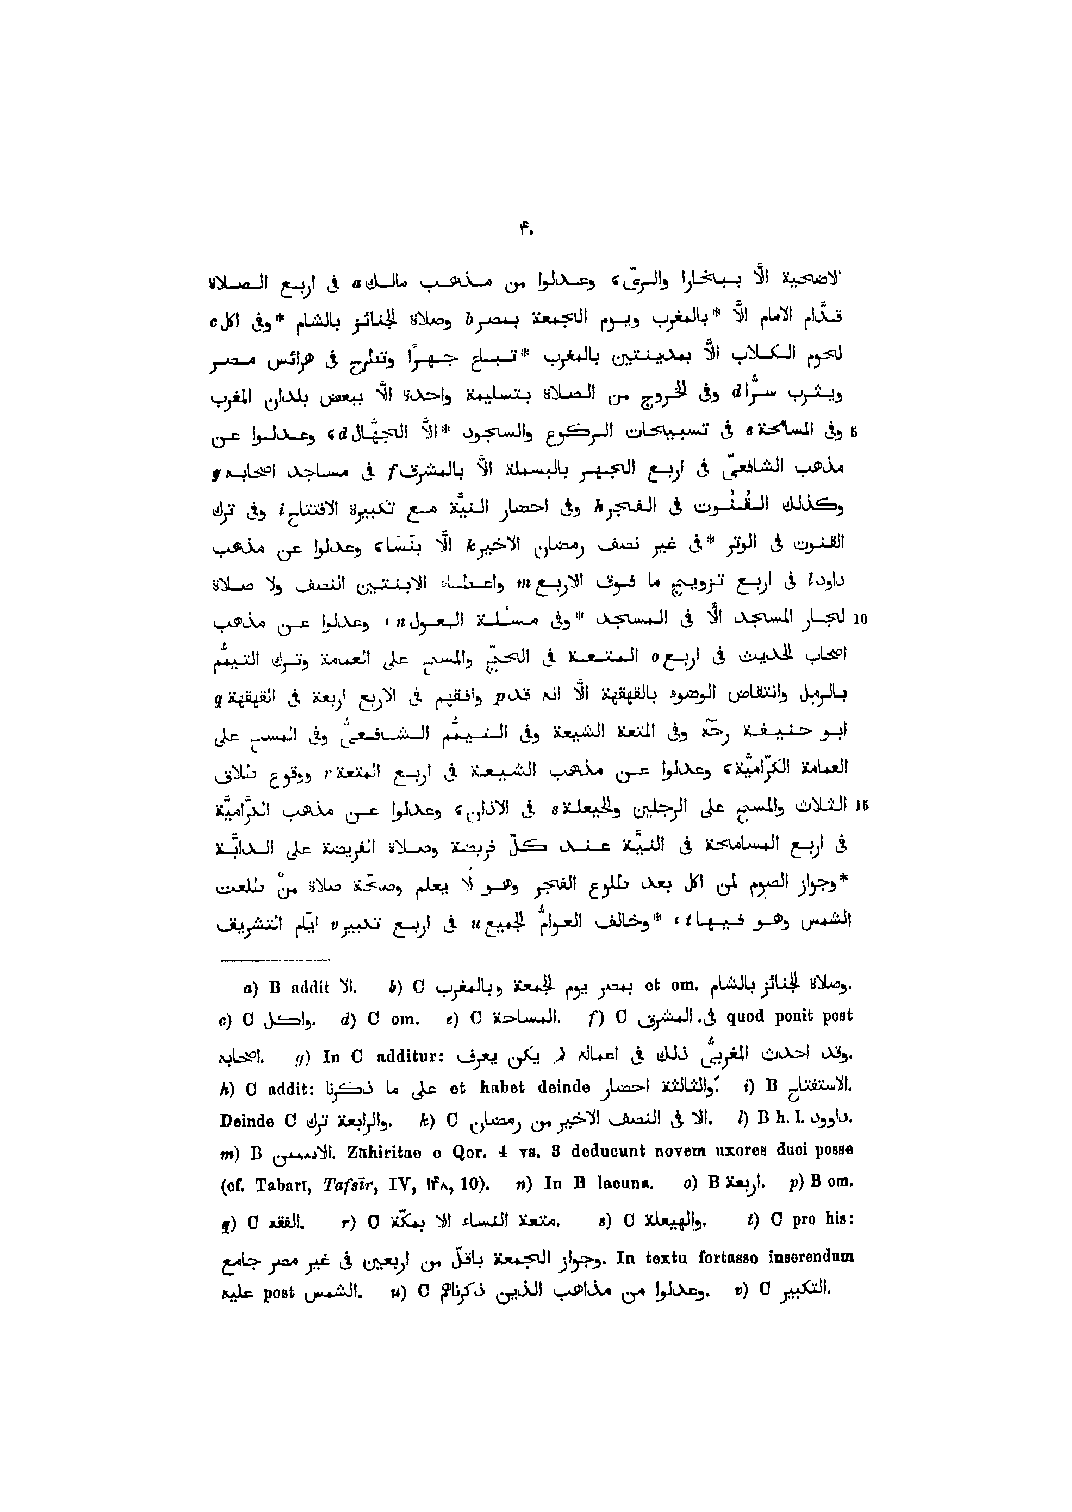 ۴۰
الاضحية الَّا ببخارا والرىّ، وعدلوا من مذهب مالك a فى اربع الصلاة
قدَّام الامام الَّا *بالمغرب ويوم الجمعة بمصر b وصلاة الجنائز بالشام *وفى اكل c
لحوم الكلاب الَّا بمدينتين بالمغرب *تباع جهرًا وتطرح فى هرائس مصر
ويثرب سرًّا d وفى الخروج من الصلاة بتسليمة واحدة الَّا ببعض بلدان المغرب
5 وفى المسامحة e فى تسبيحات الركوع والسجود *الَّا الجهّال d، وعدلوا عن
مذهب الشافعىّ فى اربع الجهر بالبسملة الَّا بالمشرق f فى مساجد اصحابه g
وكذلك القُنُوت فى الفجر h وفى احضار النيَّة مع تكبيرة الافتتاح i وفى ترك
القنوت فى الوتر *فى غير نصف رمضان الاخير k الَّا بنَسَا، وعدلوا عن مذهب
داود l فى اربع تزويج ما فوق الاربع m واعطاء الابنتين النصف ولا صلاة
لجار المسجد الَّا فى المسجد *وفى مسئلة العول n، وعدلوا عن مذهب 10
اصحاب الحديث فى اربع o المتعة فى الحجّ والمسح على العمامة وترك التيمُّم
بالرمل وانتقاض الوضوء بالقهقهة الَّا انه قد p وافقهم فى الاربع اربعة فى القهقهة q
ابو حنيفة رحّه وفى المتعة الشيعة وفى التيمُّم الشافعىُّ وفى المسح على
العمامة الكرّاميَّة، وعدلوا عن مذهب الشيعة فى اربع المتعة r ووقوع طلاق
15 الثلاث والمسح على الرجلين والحيعلة s فى الاذان، وعدلوا عن مذهب الكرَّاميَّة
فى اربع المسامحة فى النيَّة عند كلّ فريضة وصلاة الفريضة على الدابَّة
*وجواز الصوم لمن اكل بعد طلوع الفجر وهو لا يعلم وصحّة صلاة مَنْ طلعت
الشمس وهو فيها t، *وخالف العوامُّ الجميع u فى اربع تكبير v ايّام التشريق
a) B addit الا. b) C بمصر يوم الجمعة وبالمغرب et om. وصلاة الجنائز بالشام.
c) C واكل. d) C om. e) C المساحة. f) C فى المشرق. quod ponit post
اصحابه. g) In C additur: وقد احدث المغربىُّ ذلك فى اعماله لم يكن يعرف.
h) C addit: على ما ذكرنا et habet deinde والثالثة احضار. i) B الاستفتاح.
Deinde C والرابعة ترك. k) C الا فى النصف الاخير من رمضان. l) B h. l. داوود.
m) B الاثنتين. Zahiritae e Qor. 4 vs. 3 deducunt novem uxores duci posse
(cf. Tabarî, Tafsîr, IV, ١٤٨, 10). n) In B lacuna. o) B اربعة. p) B om.
q) C الفقه. r) C متعة النساء الا بمكّة. s) C والهيعلة. t) C pro his:
وجواز الجمعة باقلّ من اربعين فى غير مصر جامع. In textu fortasse inserendum
عليه post الشمس. u) C وعدلوا من مذاهب الذين ذكرناهم. v) C التكبير.